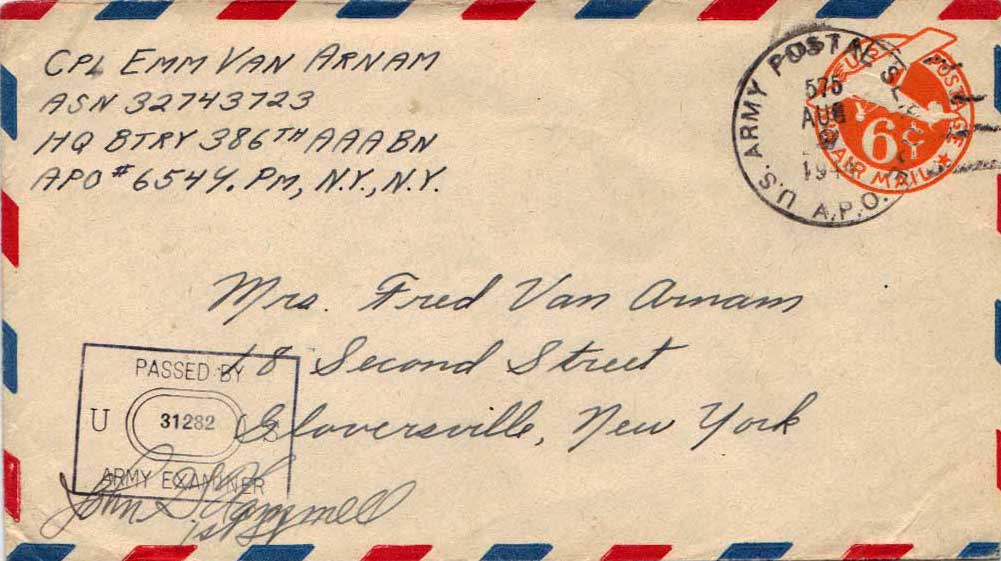 CPL EMM VAN ARNAM
ASN 32743723
HQ BTRY 386TH AAABN
APO # 654%. PM, N.Y., N.Y.
U.S. ARMY POSTAL SERVICE
A.P.O.
575
AUG
194
U.S. POSTAGE
6¢
AIR MAIL
Mrs. Fred Van Arnam
18 Second Street
Gloversville, New York
PASSED BY
U 31282 S
ARMY EXAMINER
John